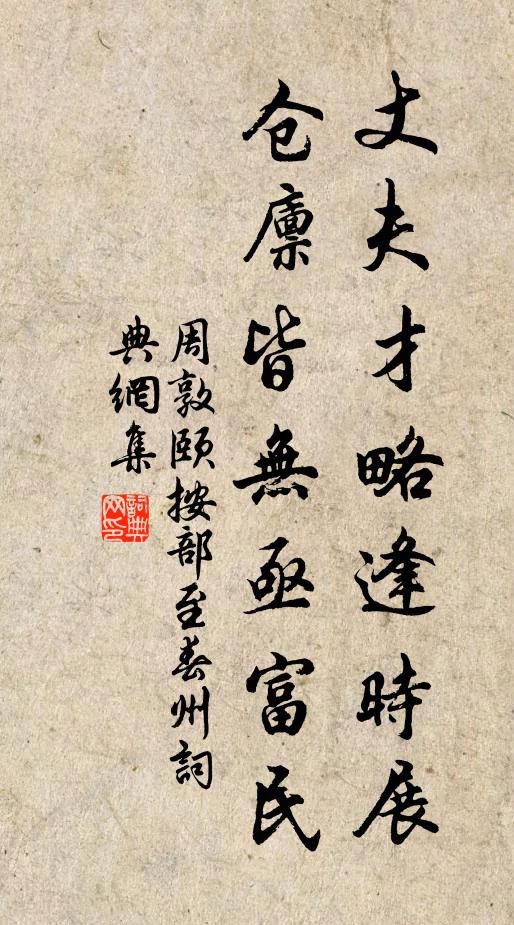 丈夫才略逢時展
仓廪皆無亟富民
周敦颐按部至春州詞
典網集
詞典网印